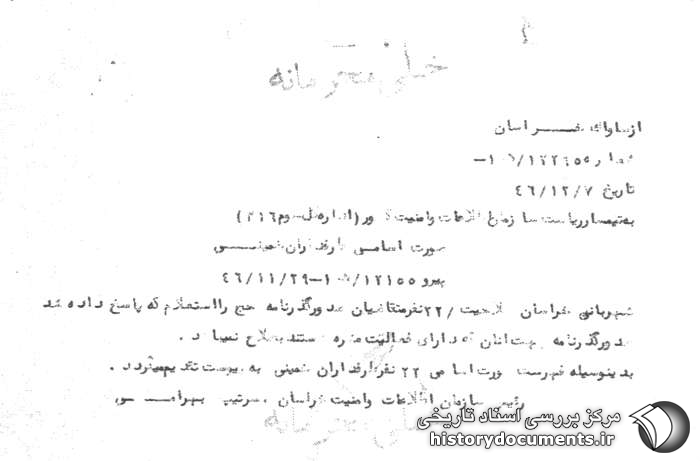 خیلی محرمانه
از ساواک خراسان
شماره
تاریخ ۴۶/۱۲/۷
به تیمسار ریاست سازمان اطلاعات و امنیت کشور (اداره کل سوم ۳۱۶)
صورت اسامی طرفداران خمینی
پیرو ۱۲۱۵۵/ ۴۶/۱۱/۲۹
شهربانی خراسان صلاحیت /۲۲ نفر متقاضیان صدور گذرنامه حج را استعلام که پاسخ داده شد
صدور گذرنامه جهت آنان که دارای فعالیت مضره هستند به صلاح نمیباشد .
بدینوسیله فهرست صورت اسامی ۲۲ نفر طرفداران خمینی به پیوست تقدیم میگردد .
رئیس سازمان اطلاعات و امنیت خراسان . سرتیپ بهرامی
خیلی محرمانه
مرکز بررسی اسناد تاریخی
historydocuments.ir